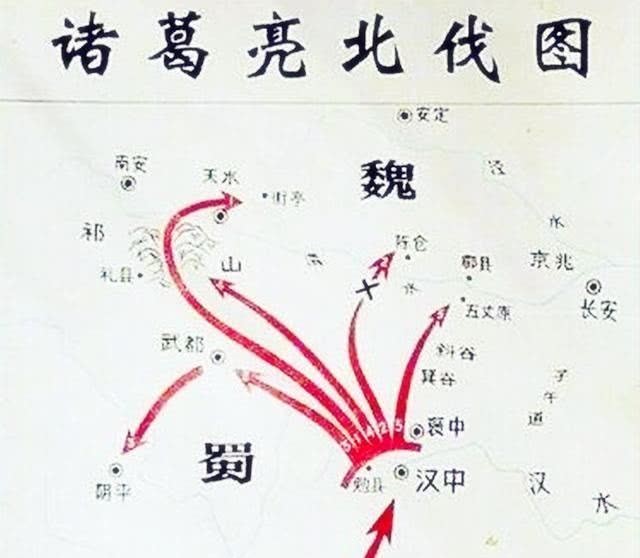 诸葛亮北伐图
安定
南安
天水
街亭
魏
泾
水
祁
山
渭
水
陈仓
郿县
京兆
礼县
五丈原
长安
武都
斜谷
箕谷
子
午
道
3 1 4 2 5
褒中
3
蜀
阴平
勉县
汉中
汉
水